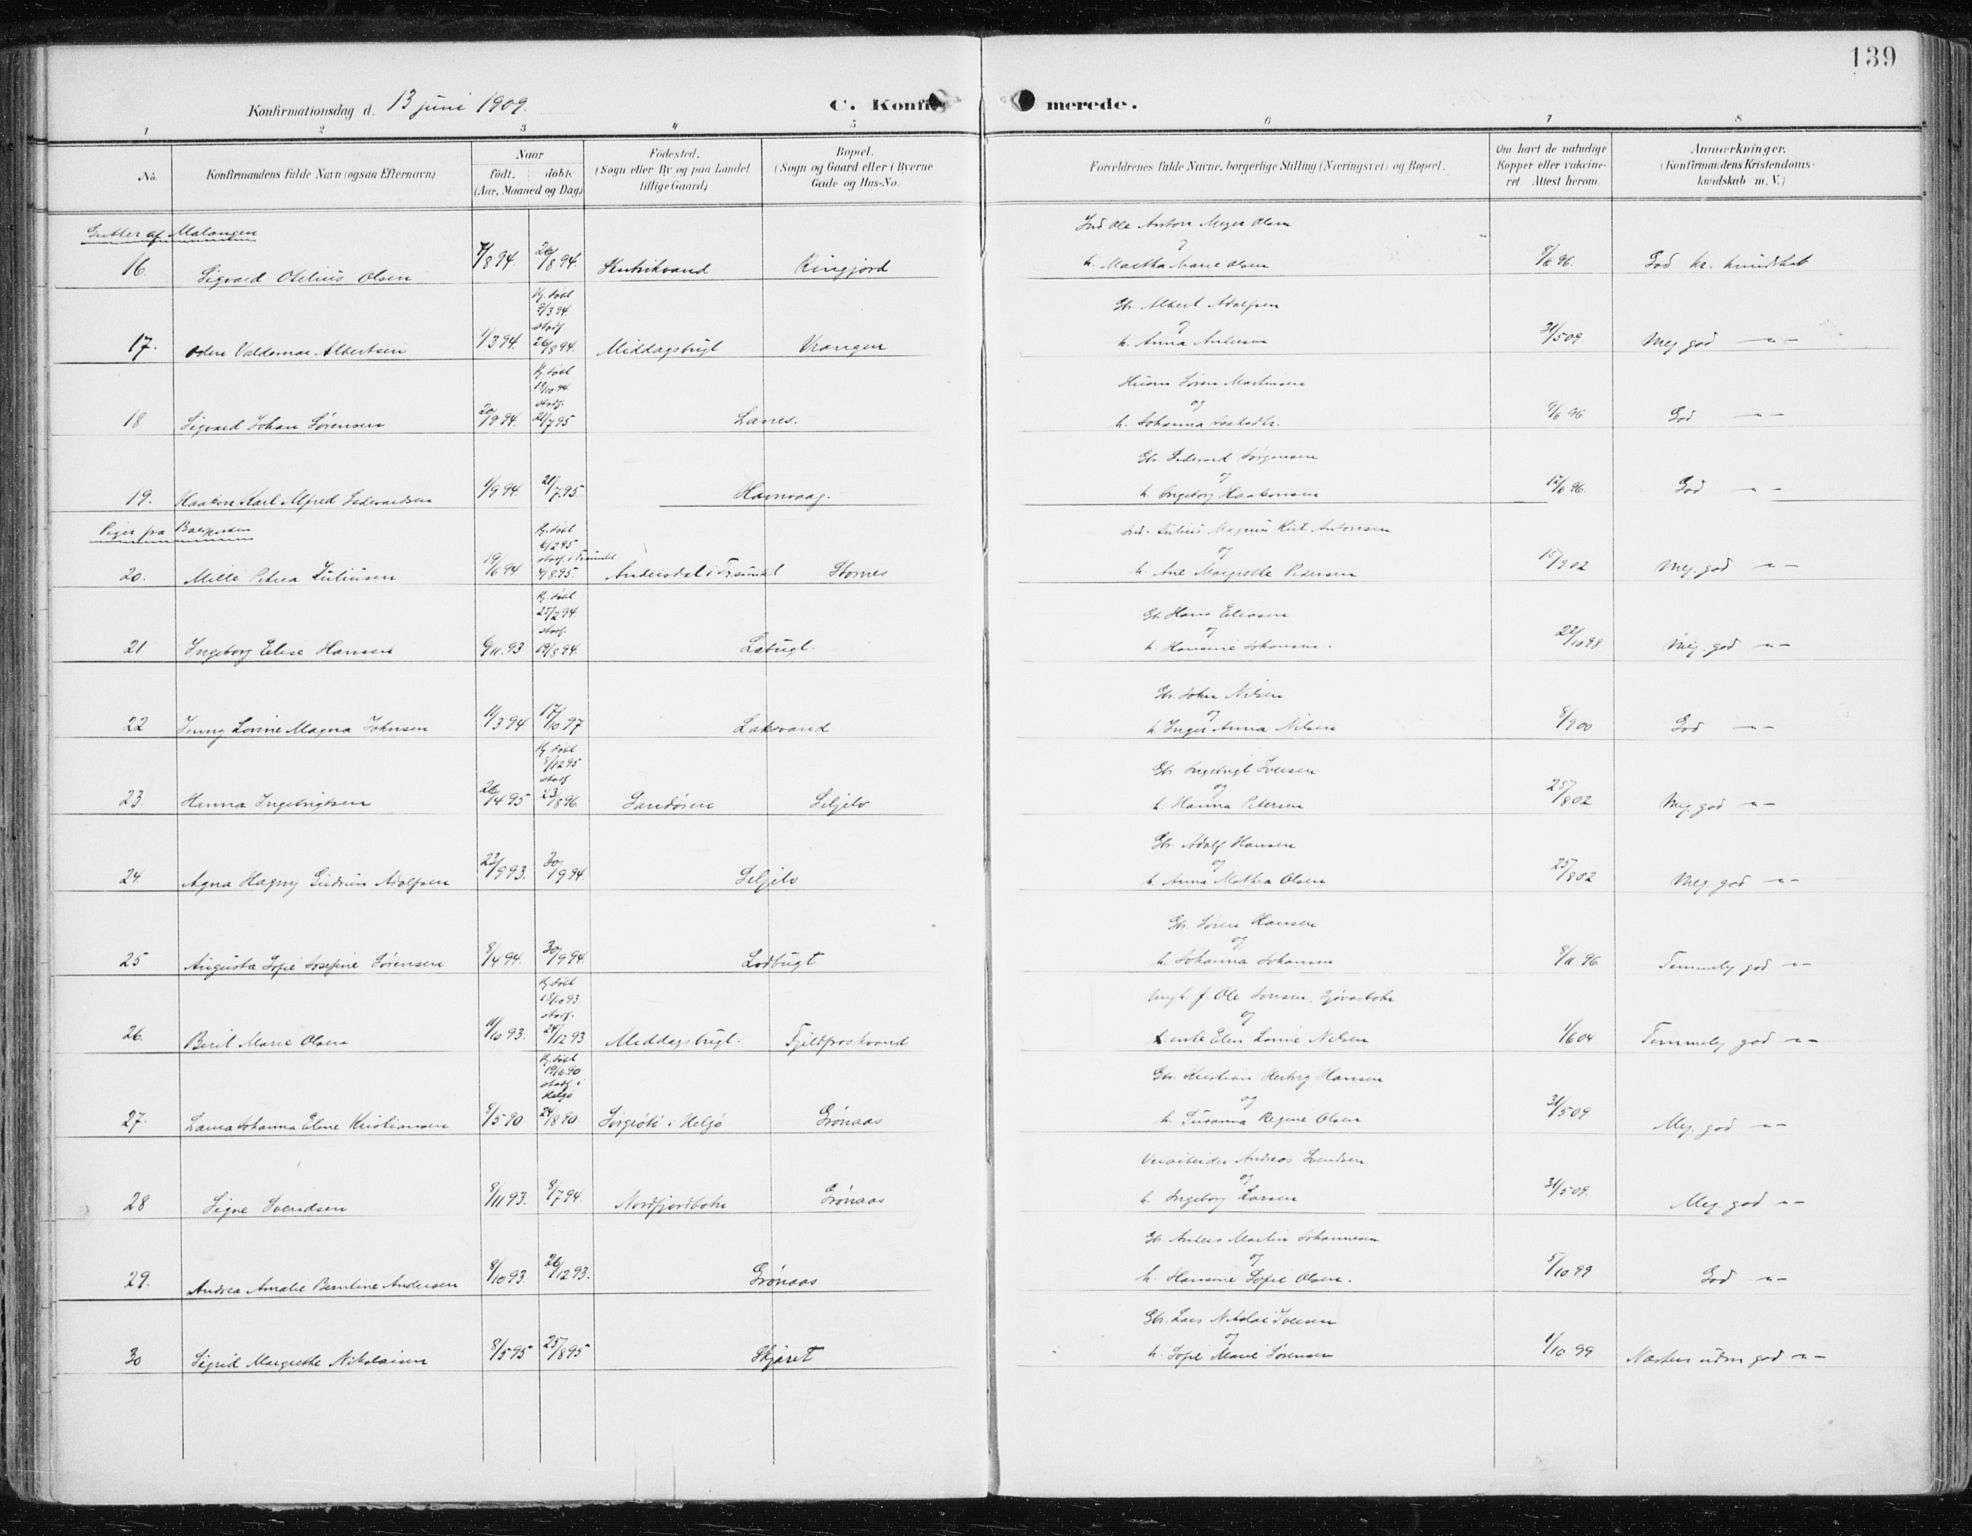 139
Konfirmationsdag d. 13 juni 1909.
C. Konfirmerede.
1 2 3 4 5 6 7 8
No.
Konfirmandens fulde Navn (ogsaa Efternavn)
Naar
født. døbt.
(Aar, Maaned og Dag)
Fødested.
(Sogn eller By og paa Landet
tillige Gaard)
Bopæl.
(Sogn og Gaard eller i Byerne
Gade og Hus-No.
Forældrenes fulde Navne, borgerlige Stilling (Næringsvei) og Bopæl.
Om havt de naturlige
Kopper eller vakcine-
ret. Attest herom.
Anmærkninger.
(Konfirmandens Kristendoms-
kundskab m. V.)
Gutter af Malangen
Ind Ole Anton Meyer Olsen
og
16. Sigvard Otelius Olsen 7/8 94. 26/8 94. Kingjord h. Martha Marie Olsen 8/6 96. God kr. kundskab
Hj. døbt
2/3 94.
stadf.
Gbr. Albert Adolfsen
og
17. Oden Valdemar Albertsen 1/3 94. 26/8 94. Middagsbugt Vrangen h. Anna Andersen 31/5 09 Meg. god -"-
Hj. døbt
stadf.
Husm Søren Martinsen
og
18 Sigvard Johan Sørensen 20/9 94. 21/7 95 Lanes. h. Johanna 9/6 96 God -"-
Gbr. Edevard Jørgensen
og
19. Haakon Karl Alfred Edevardsen 1/9 94. 21/7 95. Havnvaag. h. Ingeborg Haakonsen 12/6 96. God -"-
Piger fra Balsfjorden
Hj. døbt
6/2 95
Ind. Julius Magnus Kiil Antonsen
og
20. Mille Petrea Juliusen 19/6 94 4/8 95. Andersdal i Tromsøundet Stornes h. Ane Margrethe Pedersen 15/9 02 Meg. god -"-
Hj. døbt
25/2 94.
stadf.
Gbr. Hans Eliasen
og
21 Ingeborg Elise Hansen 6/11 93 19/8 94. h. Hansine Johansen. 22/10 98 Meg. god -"-
Gbr. John Nilsen
og
22 Jenny Lovine Magna Johnsen 11/3 94 17/10 97 Laksvand h. Inger Anna Nilsen 8/9 00 God -"-
Hj. døbt
8/12 95
stadf.
Gbr. Ingebrigt Iversen
og
23. Hanna Ingebrigtsen 26/4 95 23/8 96. Sandøren Seljelv h. Hanna Petersen 25/8 02 Meg. god -"-
Gbr. Adolf Hansen
og
24. Agna Hagny Gudrun Adolfsen 23/9 93. 30/9 94 Seljelv h. Anna Mathea Olsen 25/8 02 Meg. god -"-
Gbr. Søren Hansen
og
25 Augusta Sofie Josefine Sørensen 8/4 94. 30/9 94. Lodbugt h. Johanna Johansen 9/11 96 Temmelig god -"-
Hj. døbt
18/10 93
stadf.
Ungk. f. Ole Jonsen,
og
26. Beril Marie Olsen 11/10 93. 24/12 93 Middagsbugt. Fjeldfroskvand enke Elen Lovine Nilsen 1/6 04 Temmelig god -"-
Hj. døbt
19/6 90
stadf. i
Helgø
Gbr. Kristian Hertvig Hansen
og
27. Laura Johanna Eline Kristiansen 8/5 90 24/8 90 i Helgø Grønaas h. Susanna Regine Olsen 31/5 09 Meg. god -"-
Veiarbeider Andreas Svendsen
og
28 Signe Svendsen 8/11 93. 8/7 94. Nordfjordbotn Grønaas h. Ingeborg Larsen 31/5 09. Meg. god -"-
Gbr. Anders Martin Johannesen
og
29. Andrea Amalie Berntine Andersen 8/10 93. 26/12 93. Grønaas h. Hansine Sofie Olsen. 5/10 99 God -"-
Gbr. Lars Nikolai Iversen
og
30 Sigrid Margrethe Nikolaisen 8/5 95 25/8 95 Skjæret h. Sofie Marie Sørensen 1/10 99 Næsten udm. god -"-